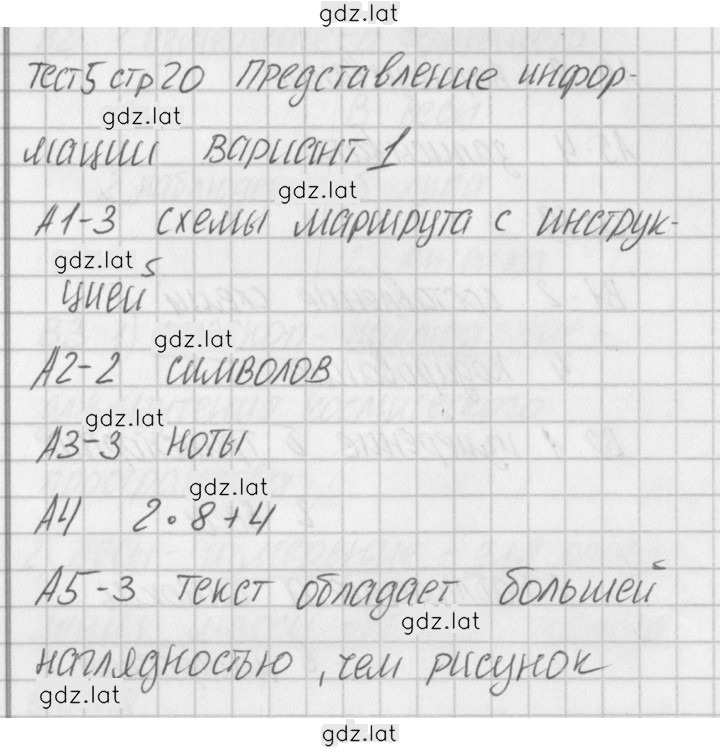 gdz.lat
Тест 5 стр 20 Представление инфор-
gdz.lat
мации Вариант 1
gdz.lat
А1-3 схемы маршрута с инструк-
gdz.lat
цией
gdz.lat
А2-2 символов
gdz.lat
А3-3 ноты
gdz.lat
А4 2·8+4
А5-3 Текст обладает большей
gdz.lat
наглядностью, чем рисунок
gdz.lat
gdz.lat